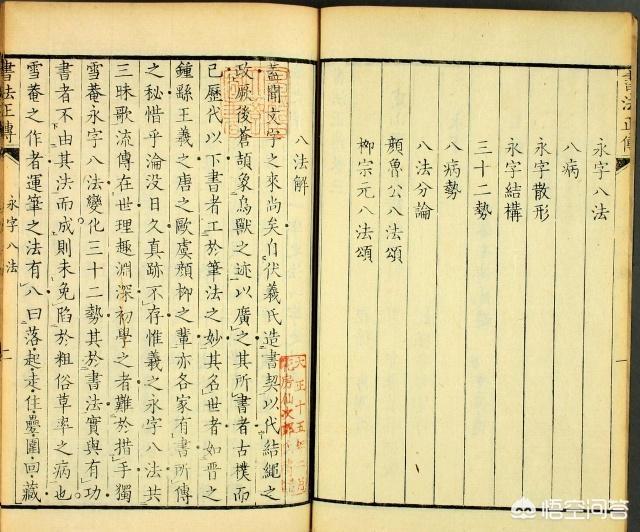 書法正傳
永字八法
八病
永字散形
永字結構
三十二勢
八病勢
八法分論
顏魯公八法頌
柳宗元八法頌
一
八法解
蓋聞文字之來尚矣自伏羲氏造書契以代結繩之
政厥後蒼頡象鳥獸之迹以廣之其所書者古樸而
已歷代以下書者工於筆法之妙其名世者如晉之
鍾繇王羲之唐之歐虞顏柳之輩亦各家有書所傳
之秘惜乎淪没日久真跡不存惟羲之永字八法共
三昧歌流傳在世理趣淵深初學之者難於措手獨
雪菴永字八法變化三十二勢其於書法實與有功
書者不由其法而成則未免陷於粗俗草率之病也
雪菴之作者運筆之法有八曰落起走住疊圍回藏
書法正傳
永字八法
一
天正十五年二月
悟空问答